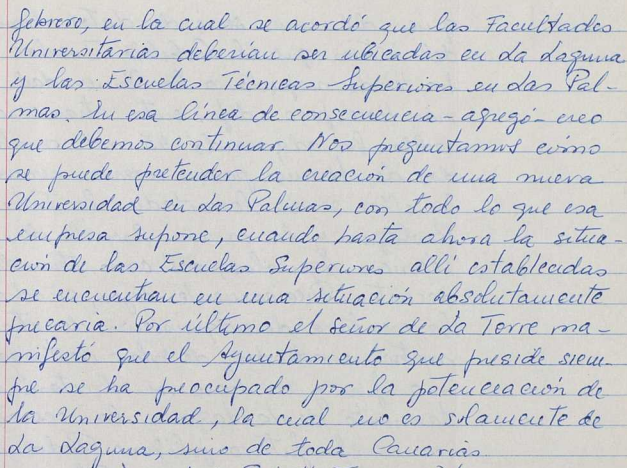 febrero, en la cual se acordó que las Facultades
Universitarias deberían ser ubicadas en La Laguna
y las Escuelas Técnicas Superiores en Las Pal-
mas. En esa línea de consecuencia - agregó - creo
que debemos continuar. Nos preguntamos cómo
se puede pretender la creación de una nueva
Universidad en Las Palmas, con todo lo que esa
empresa supone, cuando hasta ahora la situa-
ción de las Escuelas Superiores allí establecidas
se encuentran en una situación absolutamente
precaria. Por último el señor de La Torre ma-
nifestó que el Ayuntamiento que preside siem-
pre se ha preocupado por la potenciación de
la Universidad, la cual no es solamente de
La Laguna, sino de toda Canarias